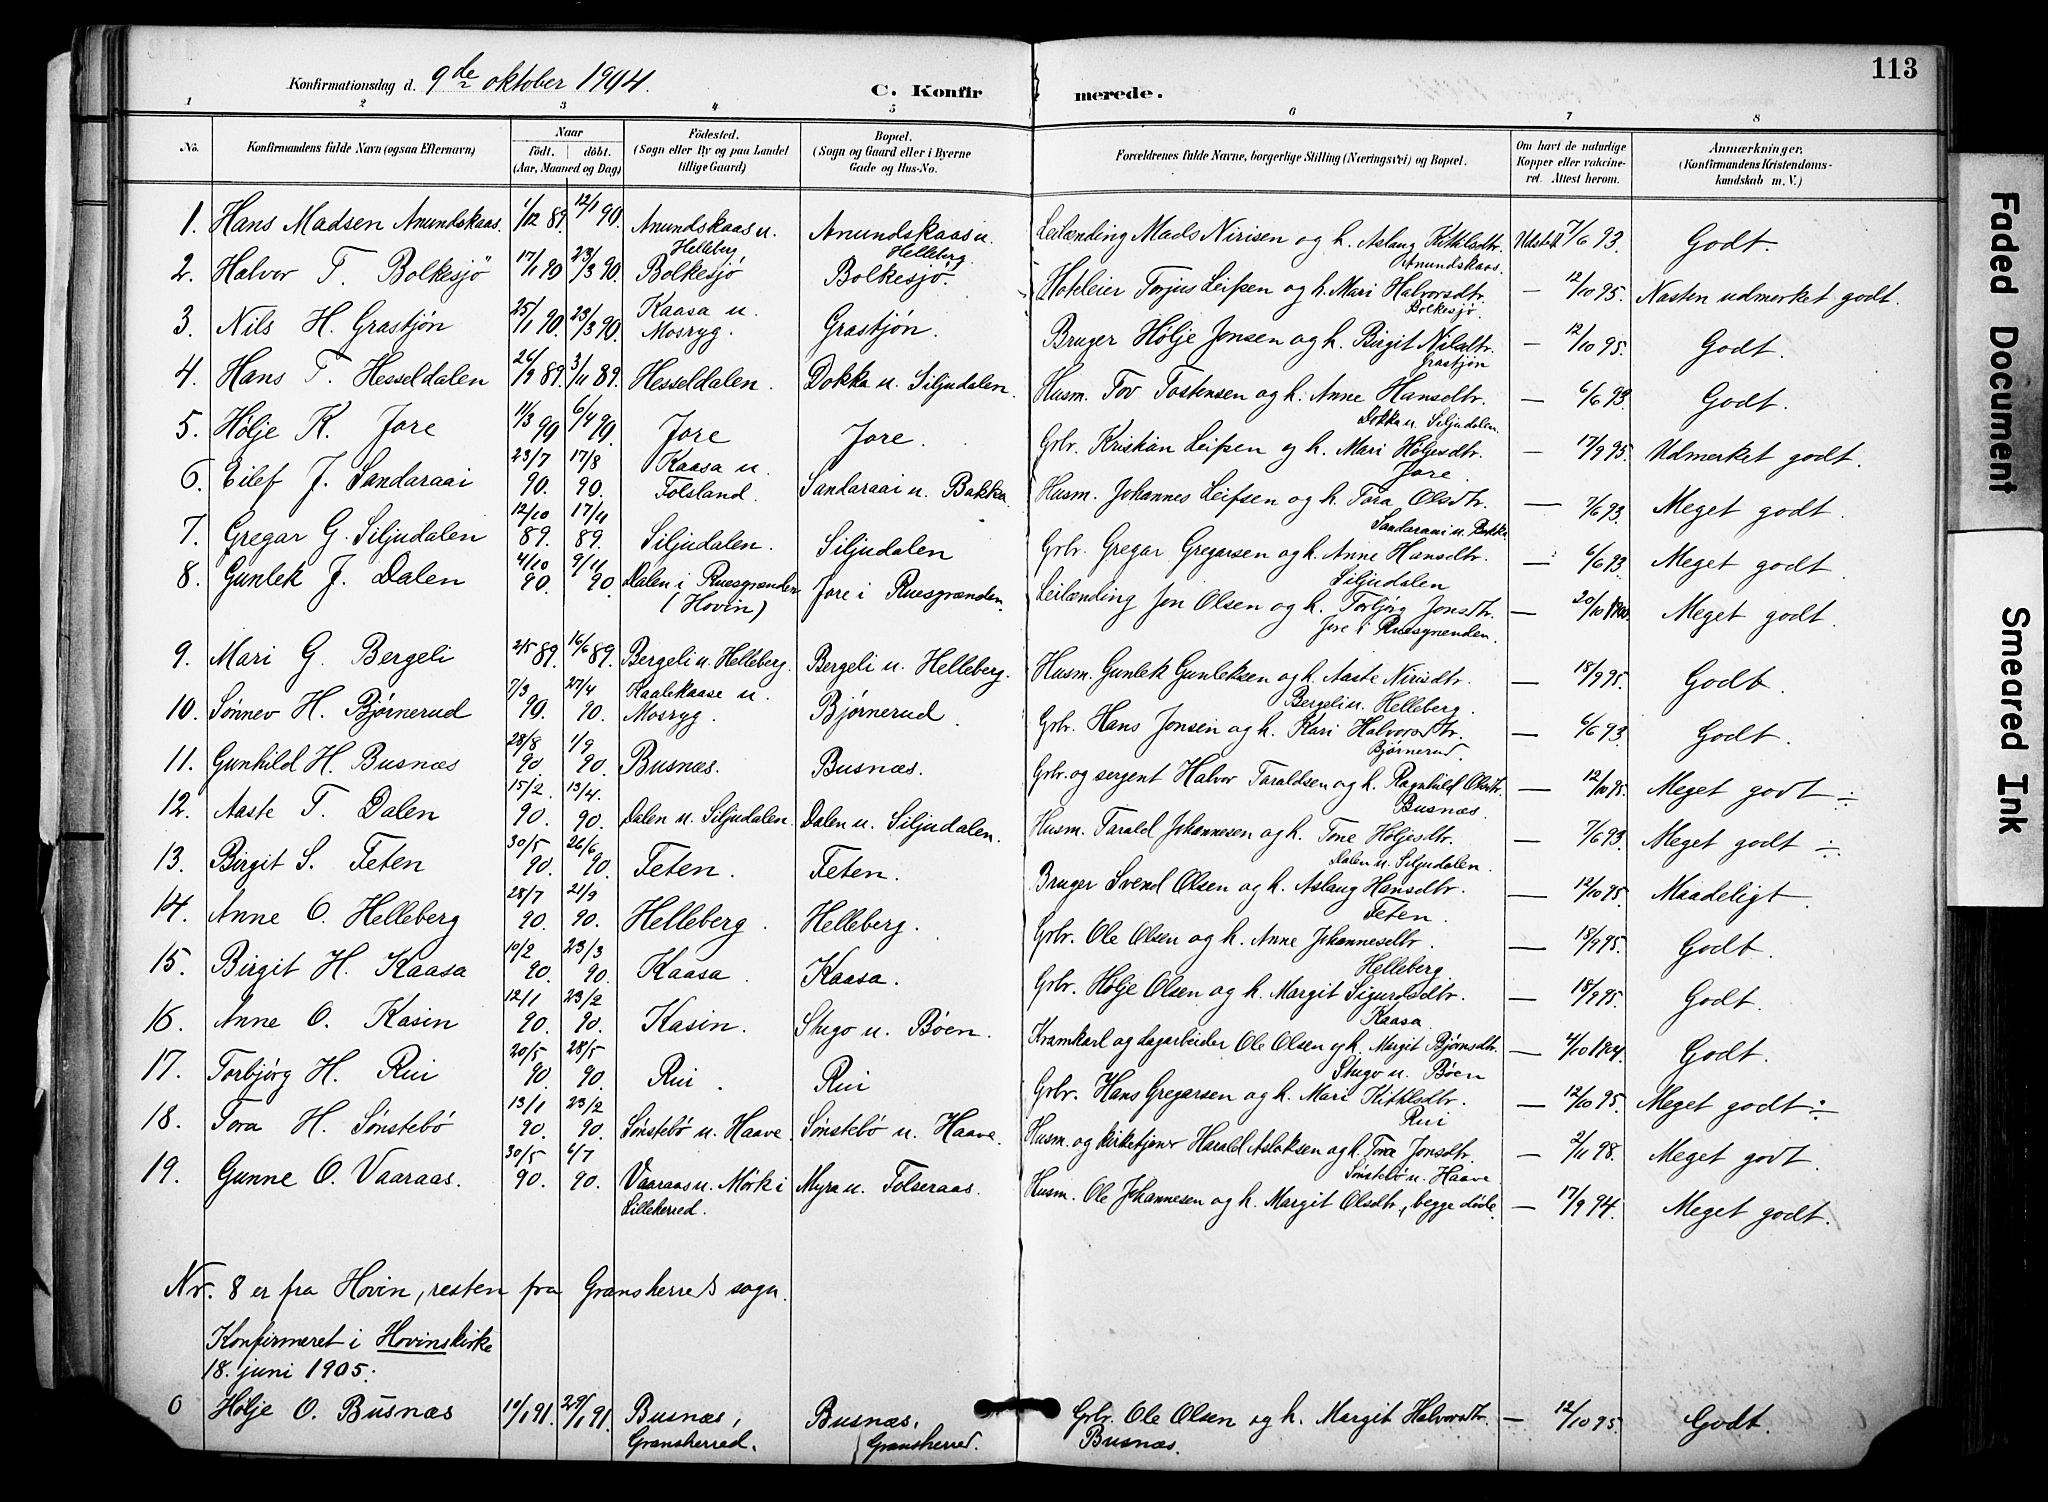 113
Konfirmationsdag d. 9de oktober 1904.
C. Konfirmerede.
1 2 3 4 5 6 7 8
No. Konfirmandens fulde Navn (ogsaa Efternavn) Naar født. døbt. (Aar, Maaned og Dag) Fødested. (Sogn eller By og paa Landet tillige Gaard) Bopæl. (Sogn og Gaard eller i Byerne Gade og Hus-No. Forældrenes fulde Navne, borgerlige Stilling (Næringsvei) og Bopæl. Om havt de naturlige Kopper eller vakcineret. Attest herom. Anmærkninger, (Konfirmandens Kristendomskundskab m. V.)
1. Hans Madsen Anundskaas. 1/12 89. 12/1 90. Anundskaas u. Helleberg Anundskaas u. Helleberg. Leilænding Mads Nirisen og h. Aslaug Kittilsdtr. Anundskaas. Udstedt 7/6 93. Godt.
2. Halvor T. Bolkesjö 17/1 90 23/3 90. Bolkesjö Bolkesjö. Hoteleier Torjus Leifsen og h. Mari Halvorsdtr. Bolkesjø. — 12/10 95. Næsten udmerket godt.
3. Nils H. Grastjøn 25/1 90. 23/3 90. Kaasa u. Mosryg. Grastjøn. Bruger Hølje Jonsen og h. Birgit Nilsdtr. Grastjøn — 12/10 95. Godt.
4. Hans T. Hesseldalen 26/9 89. 3/11 89. Hesseldalen. Dokka u. Siljudalen. Husm. Tov Tostensen og h. Anne Hansdtr. Dokka u. Siljudalen. — 6/6 93. Godt.
5. Hølje K. Jore 11/3 90 6/4 90. Jore Jore. Grbr. Kristian Leifsen og h. Mari Høljesdtr. Jore — 17/9 95. Udmerket godt.
6. Eilef J. Sandaraai 23/7 90. 17/8 90. Kaasa u. Folsland. Sandaraai u. Bakka. Husm. Johannes Leifsen og h. Tara Olsdtr. Sandaraai u. Bakka — 7/6 93. Meget godt.
7. Gregar G. Siljudalen 12/10 89. 17/11 89. Siljudalen. Siljudalen Grbr. Gregar Gregarsen og h. Anne Hansdtr. Siljudalen — 6/6 93. Meget godt.
8. Gunlek J. Dalen 4/10 90. 9/11 90. Dalen i Ruesgrænden (Hovin) Jore i Ruesgrænden. Leilænding Jon Olsen og h. Torbjørg Jonsdtr. Jore i Ruesgrænden. — 20/10 1900. Meget godt.
9. Mari G. Bergeli 2/5 89. 16/6 89. Bergeli u. Helleberg. Bergeli u. Helleberg. Husm. Gunlek Gunleksen og h. Aaste Nirisdtr. Bergeli u. Helleberg. — 18/9 95. Godt.
10. Sønnev H. Bjørnerud 7/3 90. 27/4 90. Haalekaase u. Mosryg. Bjørnerud. Grbr. Hans Jonsen og h. Kari Halvorsdtr. Bjørnerud. — 6/6 93. Godt.
11. Gunhild H. Busnæs 28/8 90 1/9 90. Busnæs. Busnæs. Grbr. og sergent Halvor Taraldsen og h. Ragnhild Olsdtr. Busnæs. — 12/10 95. Meget godt ÷
12. Aaste T. Dalen 15/2. 90. 13/4. 90. Dalen u. Siljudalen. Dalen u. Siljudalen. Husm. Tarald Johannesen og h. Tone Høljesdtr. Dalen u. Siljudalen. — 7/6 93. Meget godt ÷.
13. Birgit S. Teten 30/5 90. 26/6 90. Teten. Teten. Bruger Svend Olsen og h. Aslaug Hansdtr. Teten. — 12/10 95. Maadeligt.
14. Anne O. Helleberg 28/7 90. 21/9 90. Helleberg. Helleberg. Grbr. Ole Olsen og h. Anne Johannesdtr. Helleberg. — 18/9 95. Godt.
15. Birgit H. Kaasa 10/2 90. 23/3 90. Kaasa. Kaasa. Grbr. Hølje Olsen og h. Margit Sigurdsdtr. Kaasa. — 18/9 95. Godt.
16. Anne O. Kasin 12/1 90. 23/2 90. Kasin. Stugo u. Bøen. Kramkarl og dagarbeider Ole Olsen og h. Margit Bjørnsdtr. Stugo u. Bøen — 4/10 1904. Godt.
17. Torbjørg H. Rui 20/5 90. 28/5 90. Rui. Rui Grbr. Hans Gregarsen og h. Mari Kittilsdtr. Rui — 12/10 95. Meget godt ÷
18. Tora H. Sønstebö 13/1 90. 23/2 90. Sønstebö u. Haave. Sønstebö u. Haave. Husm. og kirketjener Harald Aslaksen og h. Tone Jonsdtr. Sønstebø u. Haave. — 2/11 98. Meget godt.
19. Gunne O. Vaaraas. 30/5 90. 6/7 90. Vaaraas u. Mørk i Lilleherred. Myra u. Folseraas. Husm. Ole Johannesen og h. Margit Olsdtr., begge døde. — 17/9 94. Meget godt.
Nr. 8 er fra Hovin, resten fra Gransherreds sogn.
Konfirmeret i Hovins kirke
18. juni 1905:
0 Hølje O. Busnæs 10/1 91. 29/1 91. Busnæs, Gransherred. Busnæs, Gransherred. Grbr. Ole Olsen og h. Margit Halvorsdtr. Busnæs. — 12/10 95. Godt.
Faded Document
Smeared Ink